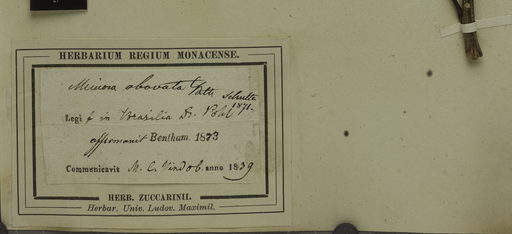 HERBARIUM REGIUM MONACENSE.
Mimosa obovata Bth.
Legi f in Brasilia Dr. Pohl
Bentham. 1873
Communicavit M. C. Vindob. anno 1839
HERB. ZUCCARINII.
Herbar. Univ. Ludov. Maximil.